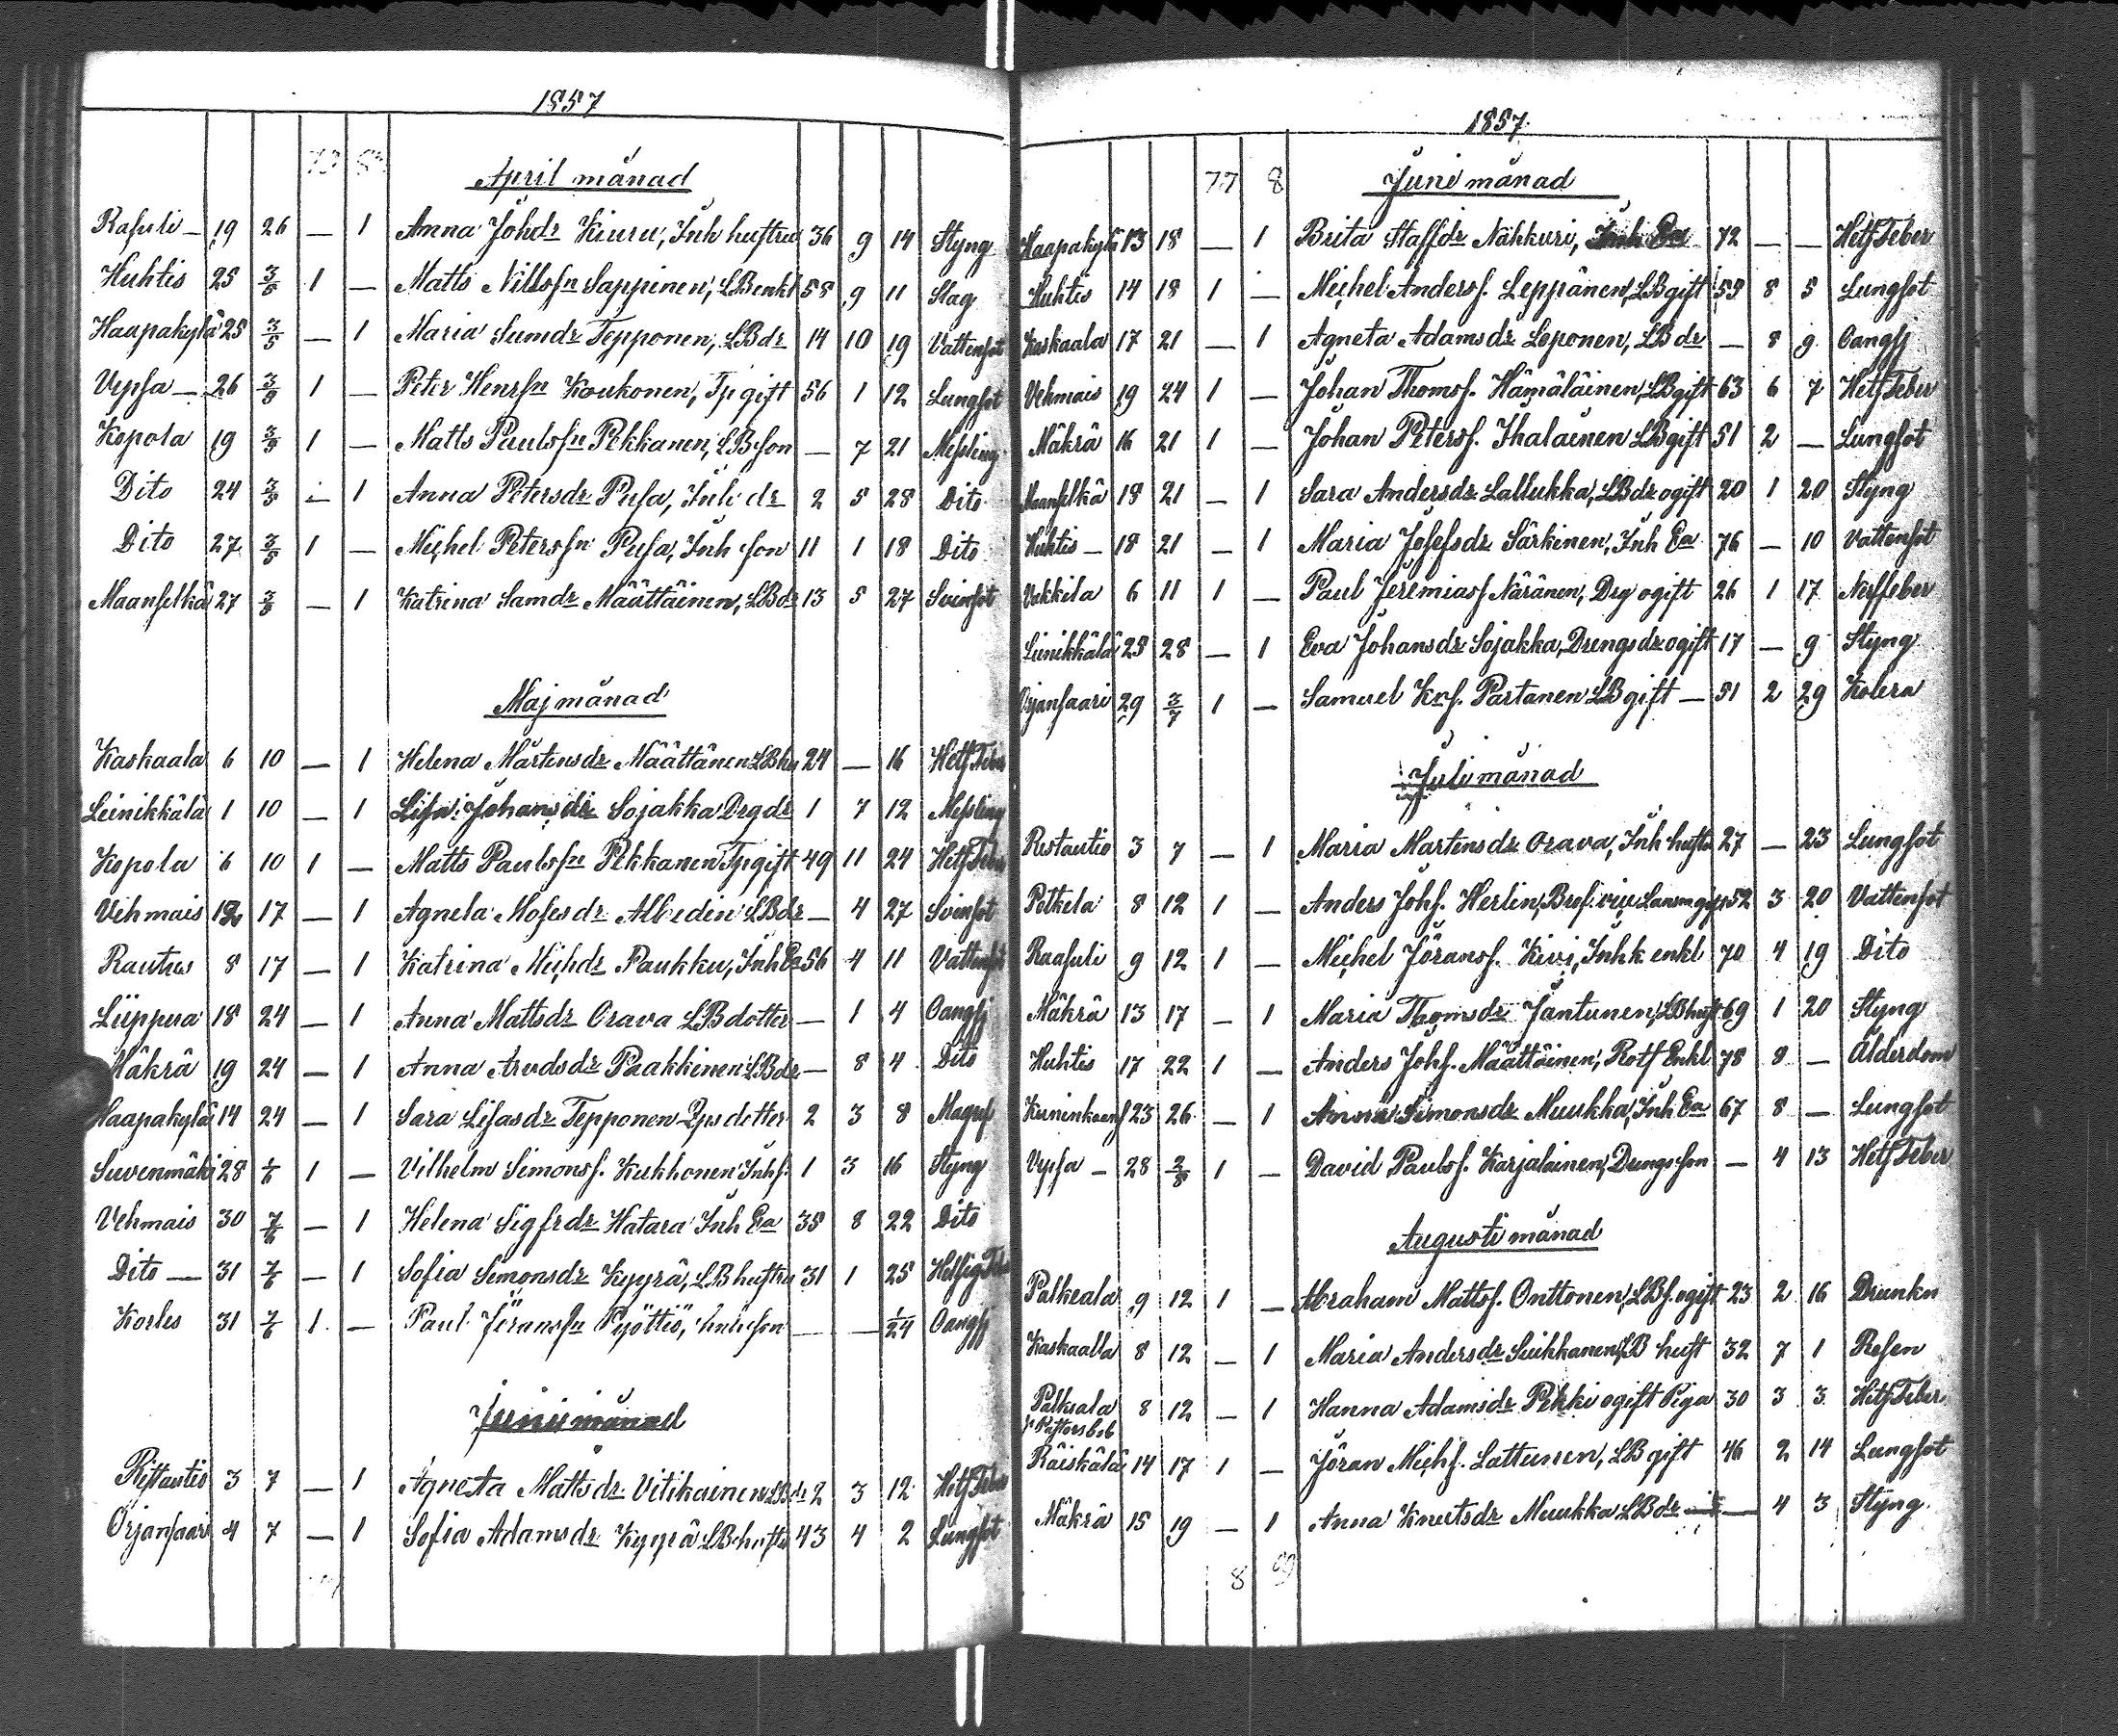 1857
April månad
Rasuli — 19 26 — 1 Anna Johdr Kiuru, Inh hustru 36 9 14 Styng
Huhtis 25 3/5 1 — Matts Nillsfn Sappinen, LB enkl 58 9 11 Slag
Haapakylä 25 3/5 — 1 Maria Simdr Tepponen, LBdr 14 10 19 Vattensot
Vepsa — 26 3/5 1 — Peter Henrsn Koukonen, Tp gift 56 1 12 Lungsot
Kopola 19 3/5 1 — Matts Paulssn Pekkanen, LBson — 7 21 Messling
Dito 24 3/5 — 1 Anna Petersdr Pusa, Inh dr 2 5 28 Dito
Dito 27 3/5 1 — Michel Peterssn Pusa, Inh son 11 1 18 Dito
Maanselkä 27 3/5 — 1 Katrina Samdr Määttäinen, LBdr 13 5 27 Svinsot
Maj månad
Kaskaala 6 10 — 1 Helena Mårtensdr Määttänen LBhu 24 — 16 Hetsfeber
Leinikkälä 1 10 — 1 Lisa Johansdr Sojakka Drgdr 1 7 12 Messling
Kopola 6 10 1 — Matts Paulssn Pekkanen Tp gift 49 11 24 Hetsfeber
Vehmais 12 17 — 1 Agneta Mosesdr Albedin LBdr — 4 27 Svinsot
Rautus 8 17 — 1 Katrina Michdr Paukku, Inh Ea 56 4 11 Vattensot
Liippua 18 24 — 1 Anna Mattsdr Orava LBdotter — 1 4 Oangsj
Mäkrä 19 24 — 1 Anna Arvdsdr Paakkinen LBdr — 8 4 Dito
Haapakylä 14 24 — 1 Sara Lisasdr Tepponen Pps dotter 2 3 8 Magsf
Suvenmäki 28 1/6 1 — Vilhelm Simonss. Kukkonen Inhs. 1 3 16 Styng
Vehmais 30 7/6 — 1 Helena Sigfrdr Hatara Inh Ea 35 8 22 Dito
Dito — 31 7/6 — 1 Sofia Simonsdr Kyyrä, LB hustru 31 1 25 Hetsfeb
Korles 31 7/6 1 — Paul Jöranssn Pyöttiö, Inh son — — 1/24 Oangsj
Juni månad
Ristautio 3 7 — 1 Agneta Mattsdr Vitikainen LBdr 2 3 12 Hetsfeber
Orjansaari 4 7 — 1 Sofia Adamsdr Kyyrä LB hustr 43 4 2 Lungsot
1857.
77 8
Juni månad
Haapakylä 13 18 — 1 Brita Staffdr Nähkuri, Inh Ea 72 — — Hetsfeber
Huhtis 14 18 1 — Michel Anderss. Leppänen, LB gift 55 8 5 Lungsot
Kaskaala 17 21 — 1 Agneta Adamsdr Loponen, LBdr — 8 9 Oangsj
Vehmais 19 24 1 — Johan Thomss. Hämäläinen, LB gift 63 6 7 Hetsfeber
Mäkrä 16 21 1 — Johan Peterss. Ihalainen LB gift 51 2 — Lungsot
Maanselkä 18 21 — 1 Sara Andersdr Lallukka, LBdr ogift 20 1 20 Styng
Huhtis — 18 21 — 1 Maria Josefsdr Särkinen, Inh Ea 76 — 10 Vattensot
Vakkila 6 11 1 — Paul Jeremiass Näränen, Drg ogift 26 1 17 Nerffeber
Leinikkälä 25 28 — 1 Eva Johansdr Sojakka, Drengsdr ogift 17 — 9 Styng
Orjansaari 29 3/7 1 — Samuel Krs. Partanen LB gift — 51 2 29 Kolera
Juli månad
Ristautio 3 7 — 1 Maria Martensdr Orava, Inh hustr 27 — 23 Lungsot
Petkela 8 12 1 — Anders Johs. Herlin, 52 3 20 Vattensot
Raasuli 9 12 1 — Michel Jöranss. Kivi, Inhk enkl 70 4 19 Dito
Mäkrä 13 17 — 1 Maria Thomsdr Jantunen, LB hust 69 1 20 Styng
Huhtis 17 22 1 — Anders Johs. Määttäinen, Rotf Enkl 78 8 — Ålderdom
23 26 — 1 Anna Simonsdr Muukka, Inh Ea 67 8 — Lungsot
Vepsa — 28 2/8 1 — David Paulss. Karjalainen, Drengs son — 4 13 Hetsfeber
Augusti månad
Palkeala 9 12 1 — Abraham Mattss. Onttonen, LBs. ogift 23 2 16 Drunkn
Kaskaalla 8 12 — 1 Maria Andersdr Suikkanen, LB hust 32 7 1 Rosen
Palkeala 8 12 — 1 Hanna Adamsdr Pekki ogift Piga 30 3 3 Hetsfeber
Pastorsbol
Räiskälä 14 17 1 — Jöran Michs. Lattunen, LB gift 46 2 14 Lungsot
Mäkrä 15 19 — 1 Anna Knutsdr Muukka LBdr — 4 3 Styng
8 9